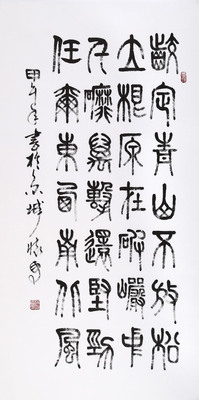 齩定青山不放松
立根原在破巖中
千磨萬擊還堅勁
任爾東西南北風
甲午年書於京城